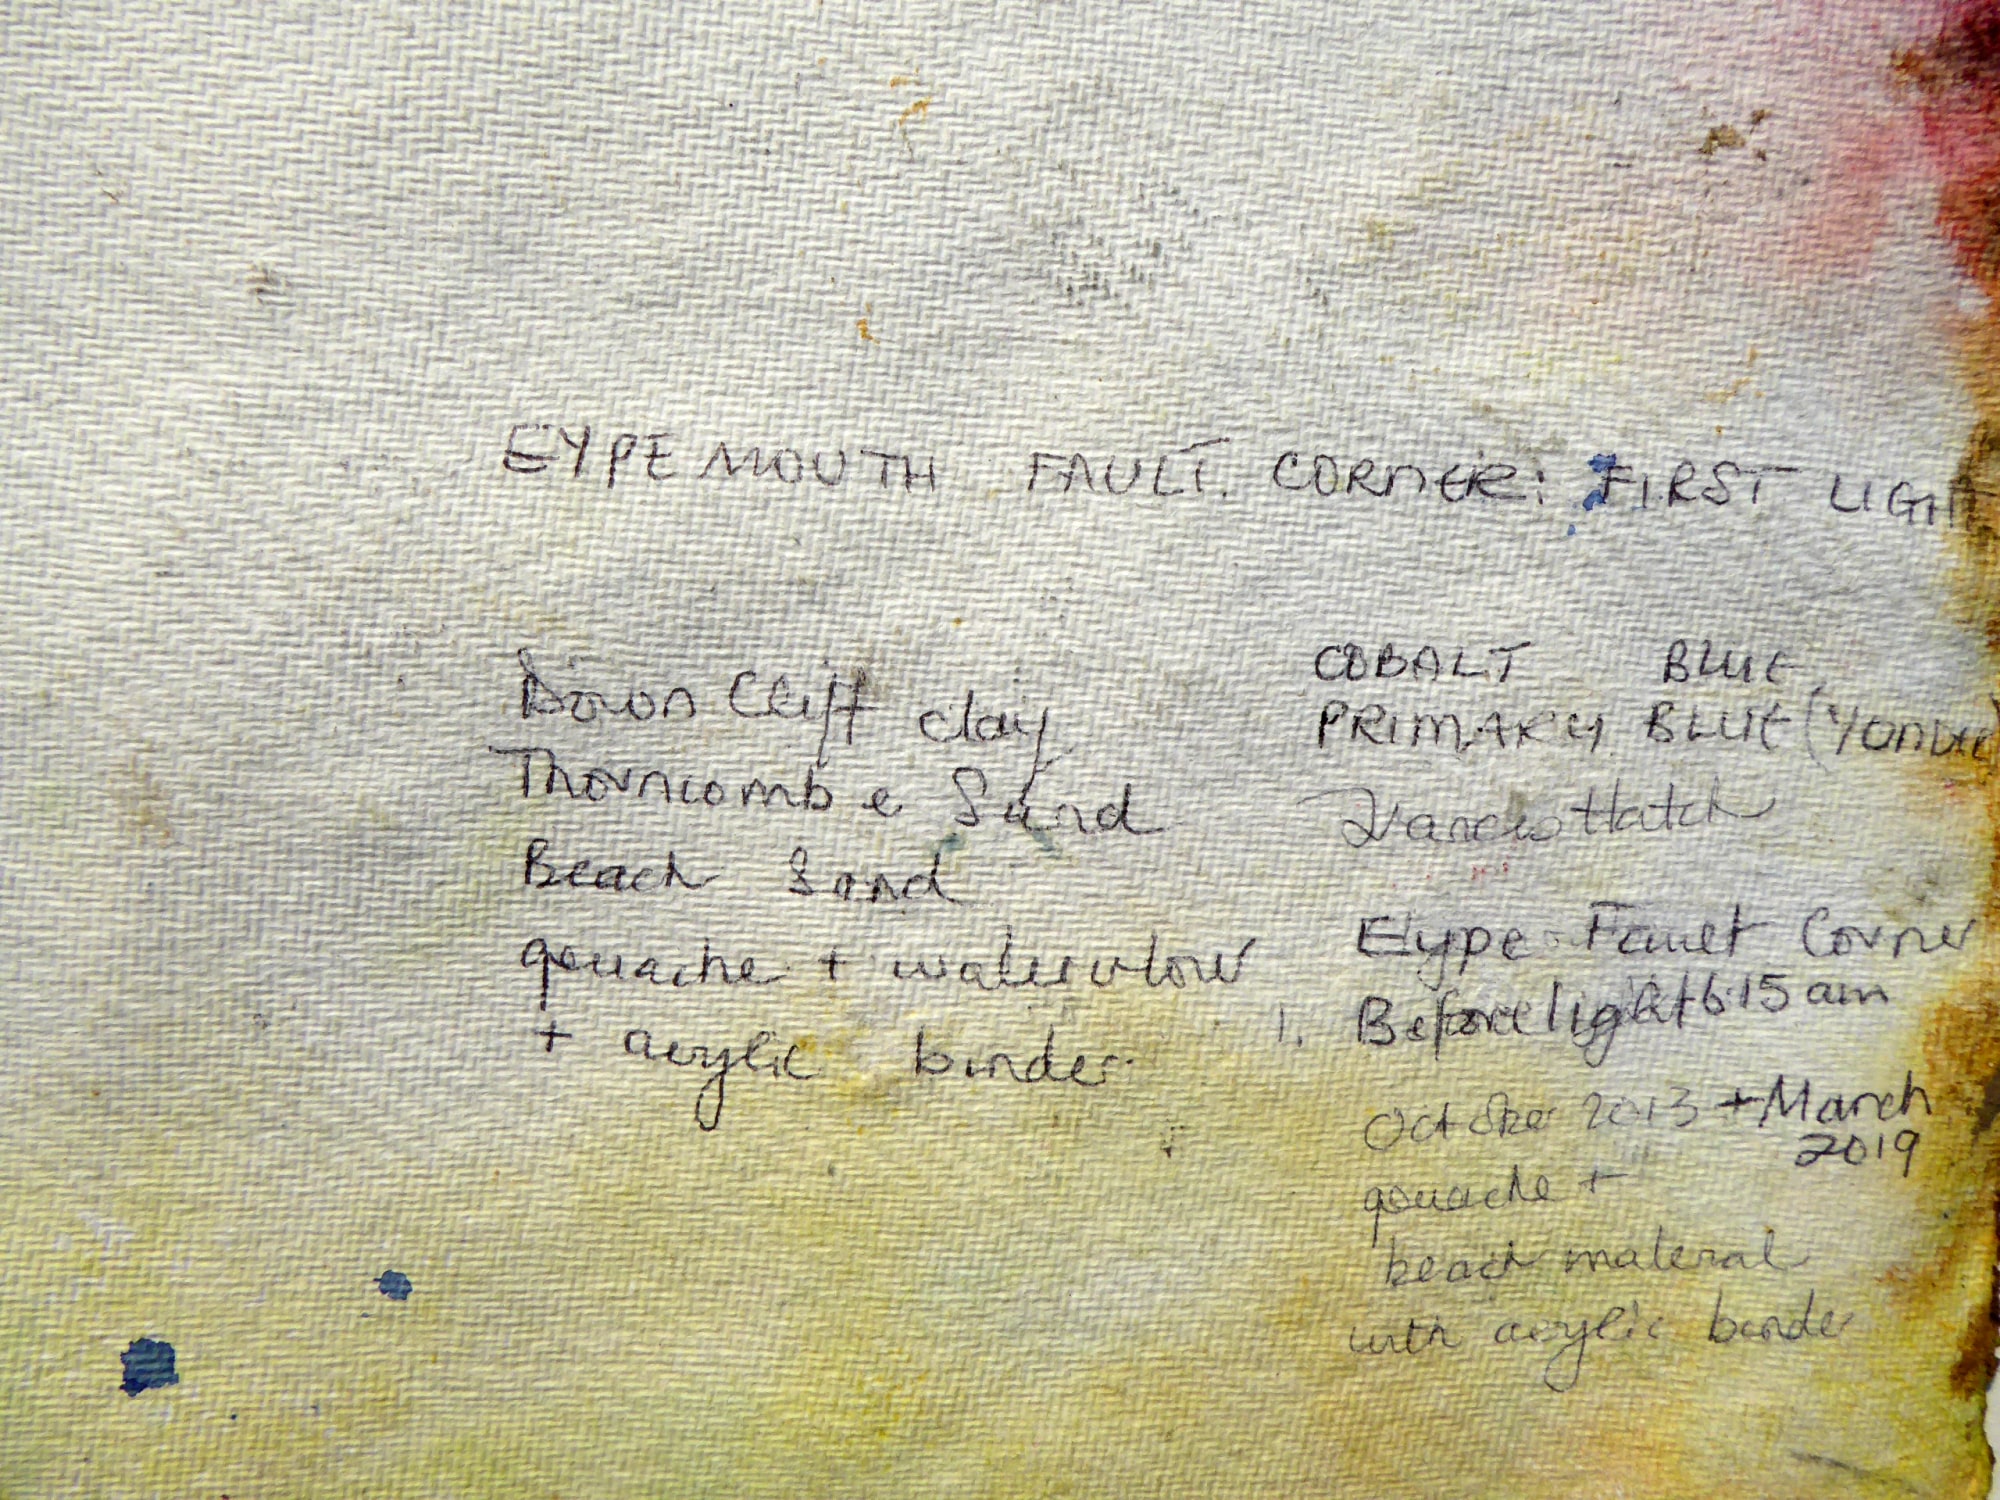 EYPEMOUTH FAULT. CORNER: FIRST LIGHT
Down Cliff clay
Thorncombe Sand
Beach Sand
gouache + watercolour
+ acrylic binder.
COBALT BLUE
PRIMARY BLUE (YONDER
Frances Hatch
Eype Fault Corner
1. Before light 6.15 am
October 2013 + March
2019
gouache +
beach material
with acrylic binder